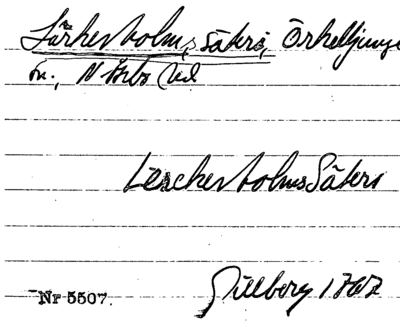 Lärkesholms, säteri, Örkelljunga
sn., N Åsbo hd.
Lerckesholms Säteri
Gillberg 1767
Nr 5507.